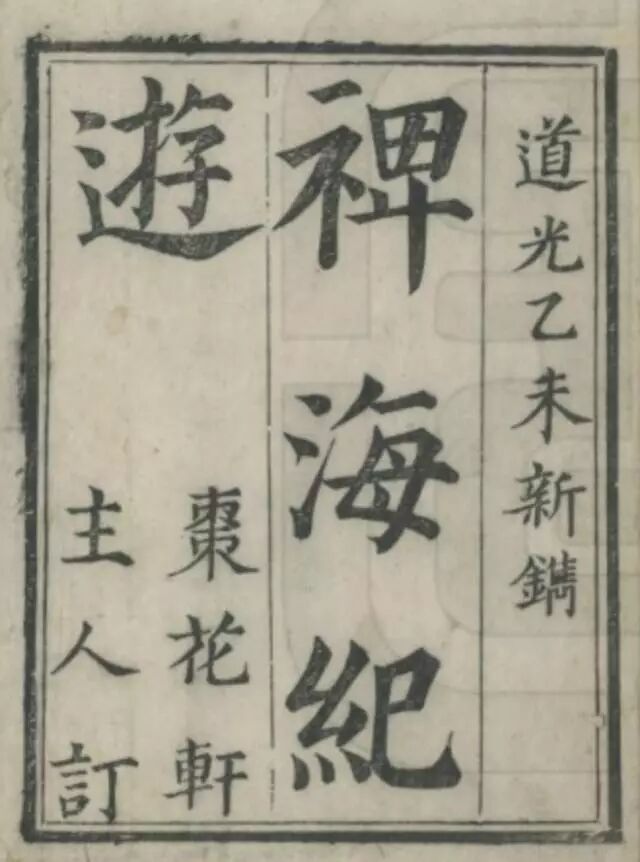 道光乙未新鐫
裨海紀
遊
棗花軒
主人訂